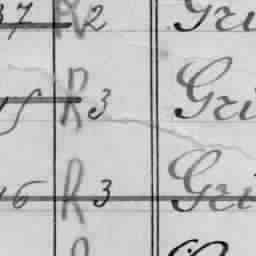 37 R2 Gri
R3 Gri
16 R3 Gri